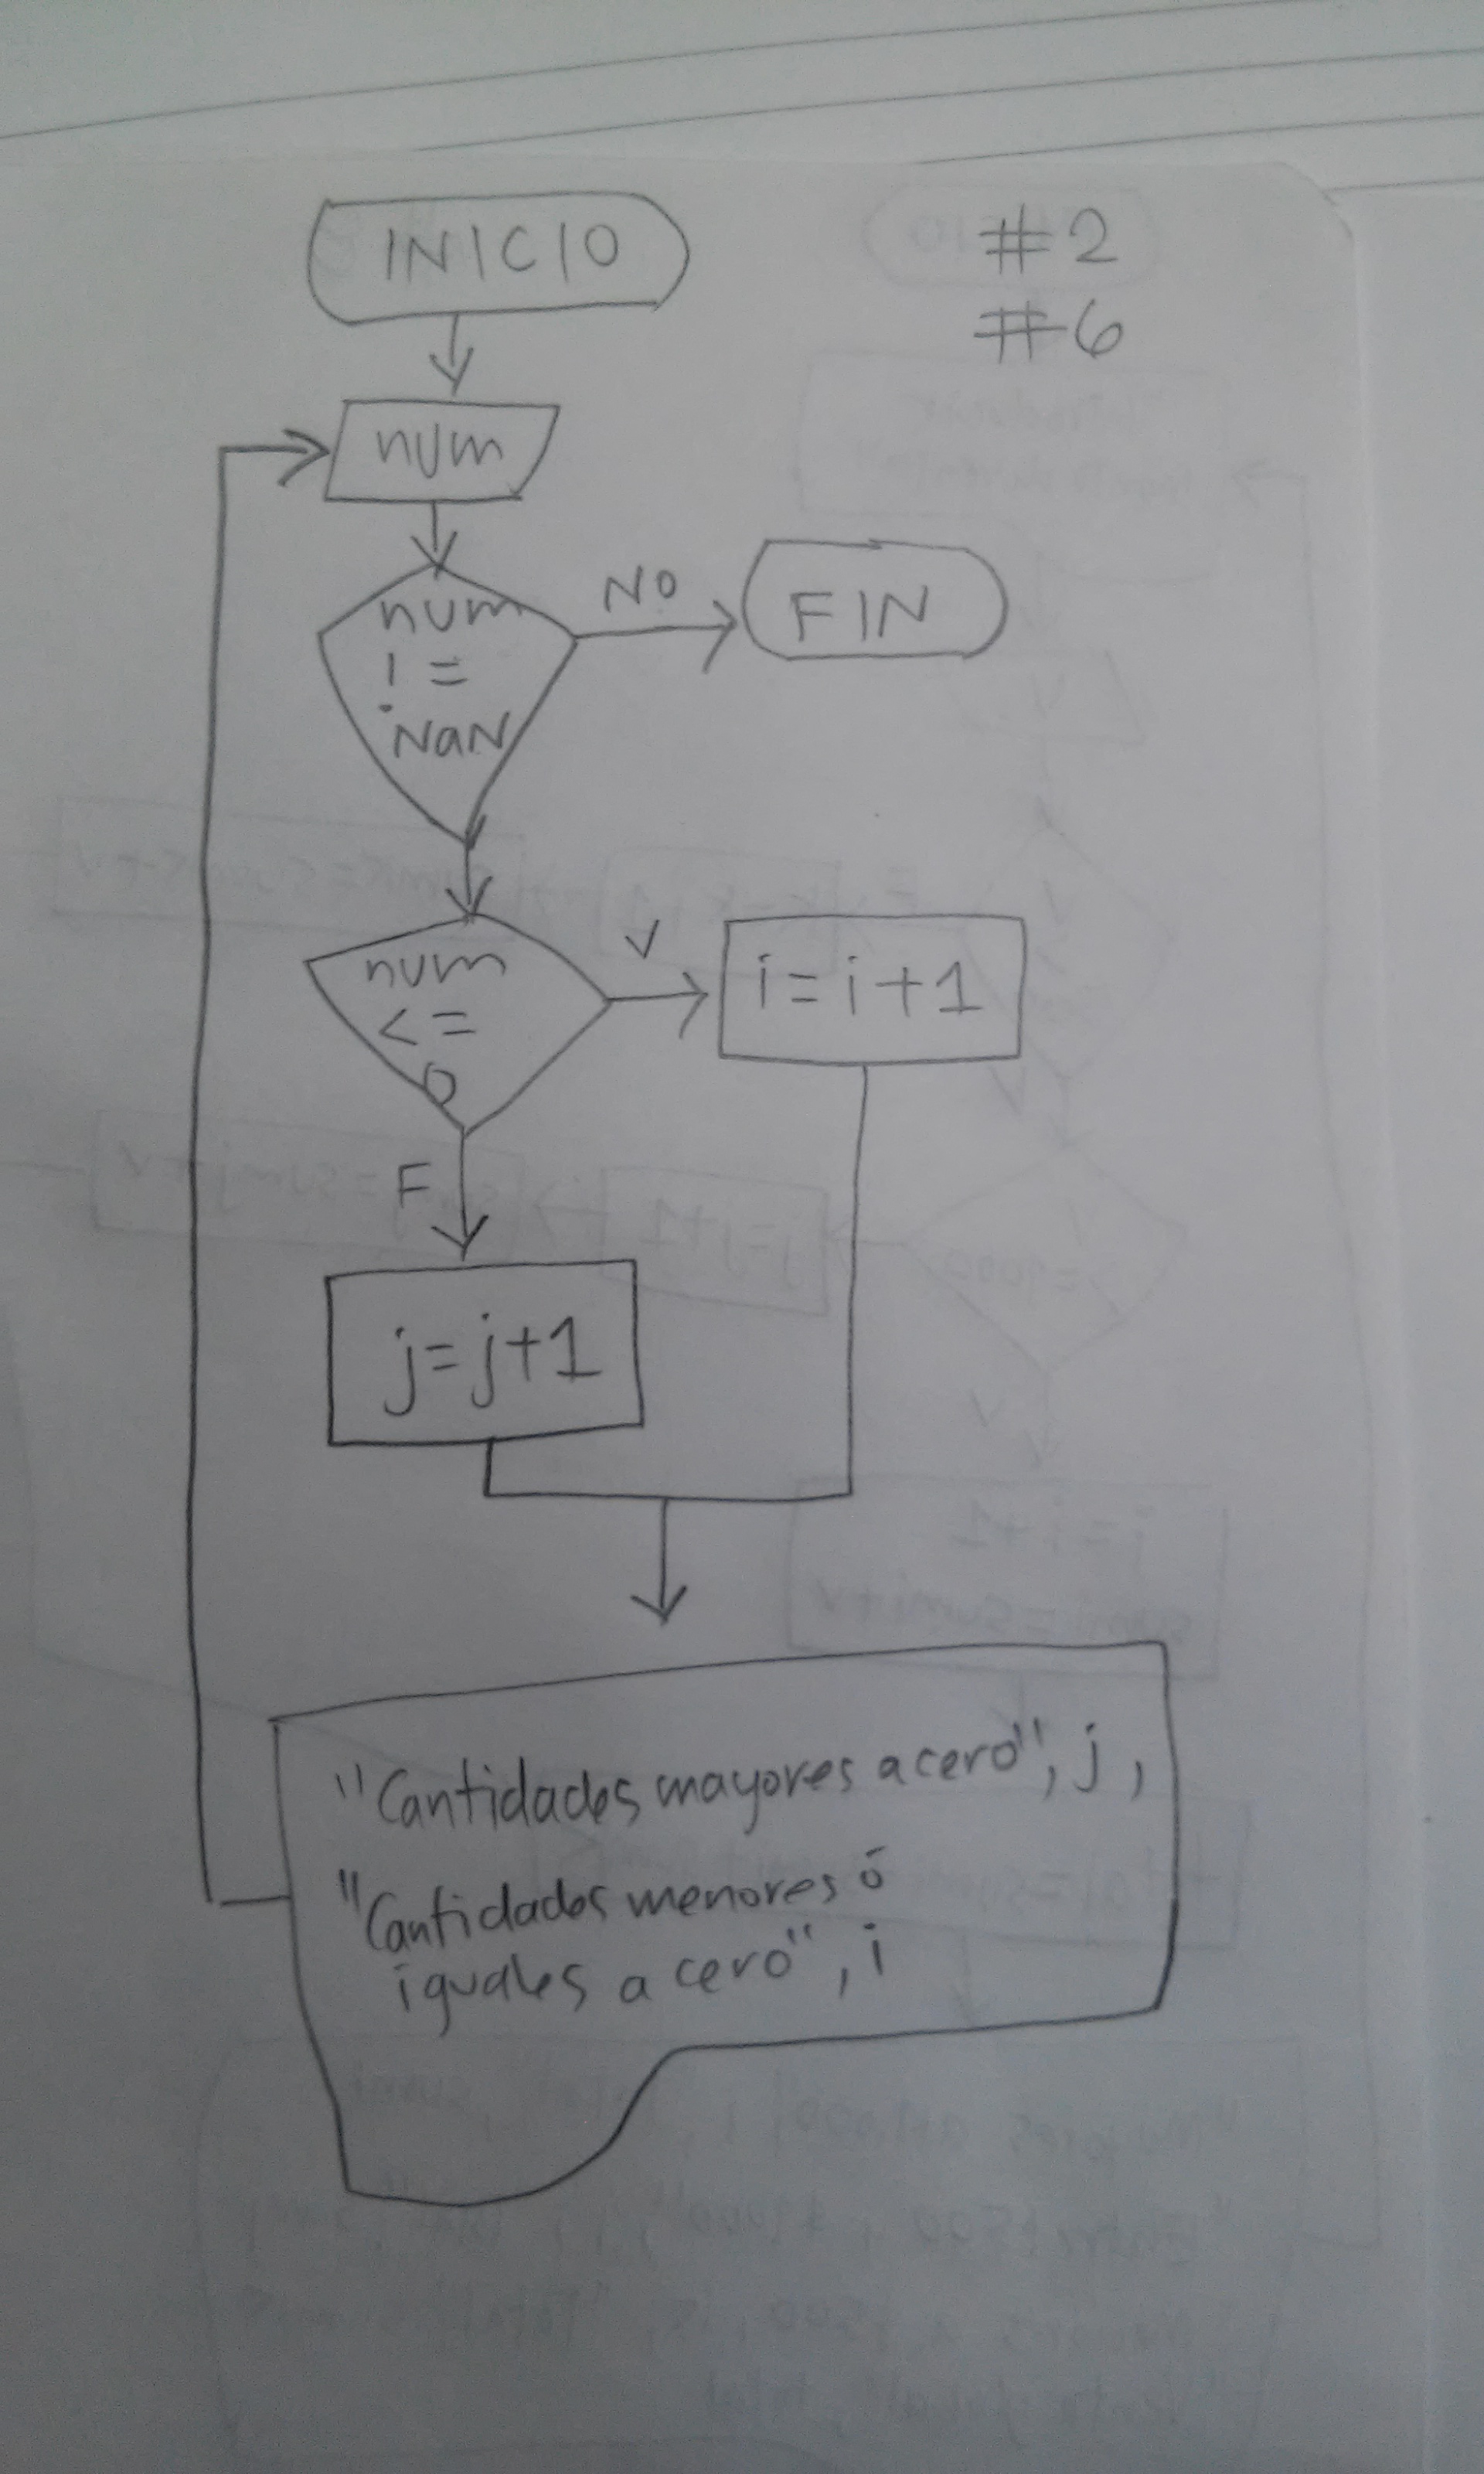 INICIO
#2
#6
num
num
!=
NaN
NO
FIN
num
<=
0
V
i=i+1
F
j=j+1
"Cantidades mayores a cero", j,
"Cantidades menores ó
iguales a cero", i